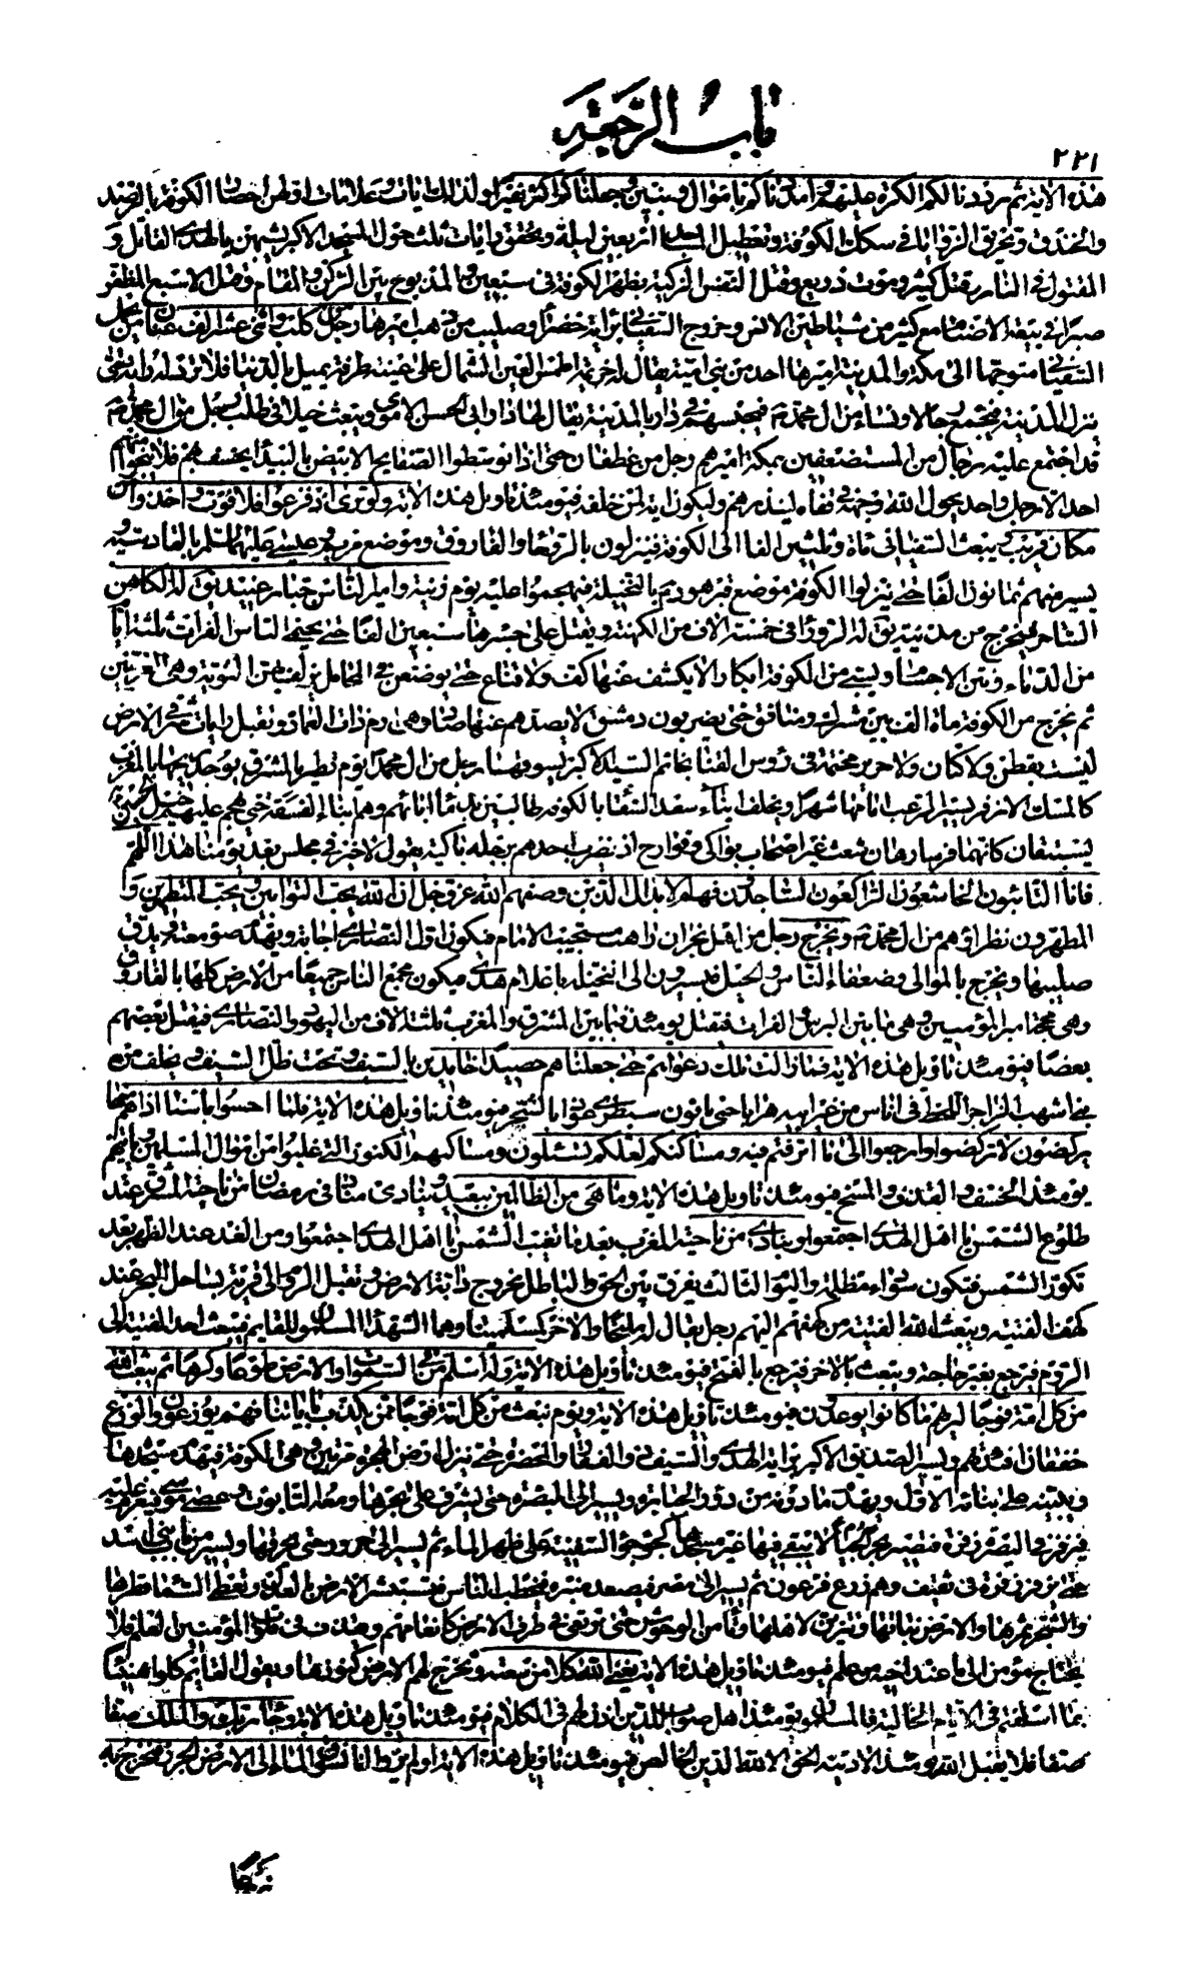 باب الرجعة
٢٢١
هذه الاية ثم رددنا لكم الكرة عليهم وامددناكم باموال وبنين وجعلناكم اكثر نفيرا ولذلك ايات وعلامات اولهن احصار الكوفة بالرصد
والخندق وتخريق الزوايا في سكك الكوفة وتعطيل المساجد اربعين ليلة وتخفق رايات ثلث حول المسجد الاكبر يشبهن بالهدى القاتل و
المقتول في النار وقتل كثير وموت ذريع وقتل النفس الزكية بظهر الكوفة في سبعين والمذبوح بين الركن والمقام وقتل الاسبع المظفر
صبرا في بيعة الاصنام مع كثير من شياطين الانس وخروج السفياني براية خضراء وصليب من ذهب اميرها رجل من كلب واثني عشر الف عنان من يحمل
السفياني متوجها الى مكة والمدينة اميرها احد من بني امية يقال له خزيمة اطمس العين الشمال على عينه طرفة يميل بالدنيا فلا ترد له راية حتى
ينزل المدينة فيجمع رجالا ونساء من ال محمد ص فيحبسهم في دار بالمدينة يقال لها دار ابي الحسن الاموي ويبعث خيلا في طلب رجل من ال محمد ص
قد اجتمع عليه رجال من المستضعفين بمكة اميرهم رجل من غطفان حتى اذا توسطوا الصفايح الابيض بالبيداء يخسف بهم فلا ينجو منهم
احد الا رجل واحد يحول الله وجهه في قفاه لينذرهم وليكون اية لمن خلفه فيومئذ تاويل هذه الاية ولو ترى اذ فزعوا فلا فوت واخذوا من
مكان قريب ويبعث السفياني مائة وثلثين الفا الى الكوفة فينزلون بالروحاء والفاروق وموضع مريم وعيسى عليهما السلم بالقادسية و
يسير منهم ثمانون الفا حتى ينزلوا الكوفة موضع قبر هود ع بالنخيلة فيهجموا عليه يوم زينة وامير الناس جبار عنيد يق له الكاهن
الساحر فيخرج من مدينة يق له الزوراء في خمسة الاف من الكهنة ويقتل على جسرها سبعين الفا حتى يحتمي الناس الفرات ثلثة ايام
من الدماء ونتن الاجساد ويسبى من الكوفة ابكارا لا يكشف عنها كف ولا قناع حتى يوضعن في المحامل يزلف بهن الثوية وهي الغريين
ثم يخرج من الكوفة مائة الف بين مشرك ومنافق حتى يضربون دمشق لا يصدهم عنها صاد وهي ارم ذات العماد وتقبل رايات شرقي الارض
ليست بقطن ولا كتان ولا حرير مختمة في رؤس القنا بخاتم السيد الاكبر يسوقها رجل من ال محمد ص يوم تطير بالمشرق يوجد ريحها بالمغرب
كالمسك الاذفر يسير الرعب امامها شهرا ويخلف ابناء سعد السقاء بالكوفة طالبين بدماء ابائهم وهم ابناء الفسقة حتى يهجم عليهم خيل الحسين ع
يستبقان كانهما فرسا رهان شعث غبر اصحاب بواكي وقوارح اذ يضرب احدهم برجله باكية يقول لا خير في مجلس بعد يومنا هذا اللهم
فانا التائبون الخاشعون الراكعون الساجدون فهم الابدال الذين وصفهم الله عز وجل ان الله يحب التوابين ويحب المتطهرين و
المطهرون نظراؤهم من ال محمد ص ويخرج رجل من اهل نجران راهب مستجيب الامام فيكون اول النصارى اجابة ويهدم صومعته ويدق
صليبها ويخرج بالموالي وضعفاء الناس والخيل فيسيرون الى النخيلة باعلام هدى فيكون مجمع الناس جميعا من الارض كلها بالفاروق
وهي محجة امير المؤمنين وهي ما بين البرس والفرات فيقتل يومئذ فيما بين المشرق والمغرب ثلثة الاف من اليهود والنصارى فيقتل بعضهم
بعضا فيومئذ تاويل هذه الاية فما زالت تلك دعواهم حتى جعلناهم حصيدا خامدين بالسيف وتحت ظل السيف ويخلف من
بني اشهب الزاجر اللحظ في اناس من غير ابيه هرابا حتى ياتون سبطرى عوذا بالشجر فيومئذ تاويل هذه الاية فلما احسوا باسنا اذا هم منها
يركضون لا تركضوا وارجعوا الى ما اترفتم فيه ومساكنكم لعلكم تسئلون ومساكنهم الكنوز التي غلبوا من اموال المسلمين وياتيهم
يومئذ الخسف والقذف والمسخ فيومئذ تاويل هذه الاية وما هي من الظالمين ببعيد وينادي مناد في رمضان من ناحية المشرق عند
طلوع الشمس يا اهل الهدى اجتمعوا وينادى من ناحية المغرب بعد ما تغيب الشمس يا اهل الهدى اجتمعوا ومن الغد عند الظهر بعد
تكور الشمس فتكون سوداء مظلمة واليوم الثالث يفرق بين الحق والباطل بخروج دابة الارض وتقبل الروم الى قرية بساحل البحر عند
كهف الفتية ويبعث الله الفتية من كهفهم اليهم رجل يقال له مليخا والاخر كمسلمينا وهما الشهداء المسلمون للقايم فيبعث احد الفتية الى
الروم فيرجع بغير حاجة ويبعث بالاخر فيرجع بالفتح فيومئذ تاويل هذه الاية وله اسلم من في السموات والارض طوعا وكرها ثم يبعث الله
من كل امة فوجا ليريهم ما كانوا يوعدون فيومئذ تاويل هذه الاية ويوم نبعث من كل امة فوجا ممن يكذب باياتنا فهم يوزعون والوزع
خفقان افئدتهم ويسير الصديق الاكبر براية الهدى والسيف ذي الفقار والمخصرة حتى ينزل ارض الهجرة مرتين وهي الكوفة فيهدم مسجدها
ويبنيه على بنائه الاول ويهدم ما دونه من دور الجبابرة ويسير الى البصرة حتى يشرف على بحرها ومعه التابوت وعصى موسى فيعزم عليه
فيزفر في البصرة زفرة فتصير بحرا لجيا لا يبقى فيها غير مسجدها كجؤجؤ السفينة على ظهر الماء ثم يسير الى حرورا حتى يحرقها ويسير من باب بني اسد
حتى يزفر زفرة في ثقيف وهم زرع فرعون ثم يسير الى مصر فيصعد منبره فيخطب الناس فتستبشر الارض بالعدل وتعطي السماء قطرها
والشجر ثمرها والارض نباتها وتتزين لاهلها وتامن الوحوش حتى ترتعي في طرف الارض كانعامهم ويقذف في قلوب المؤمنين العلم فلا
يحتاج مؤمن الى ما عند اخيه من علم فيومئذ تاويل هذه الاية يغني الله كلا من سعته وتخرج لهم الارض كنوزها ويقول القايم كلوا هنيئا
بما اسلفتم في الايام الخالية فالمسلمون يومئذ اهل صواب للدين اذن لهم في الكلام فيومئذ تاويل هذه الاية وجاء ربك والملك صفا
صفا فلا يقبل الله يومئذ الا دينه الحق الا لله الدين الخالص فيومئذ تاويل هذه الاية اولم يروا انا نسوق الماء الى الارض الجرز فنخرج به
زرعا